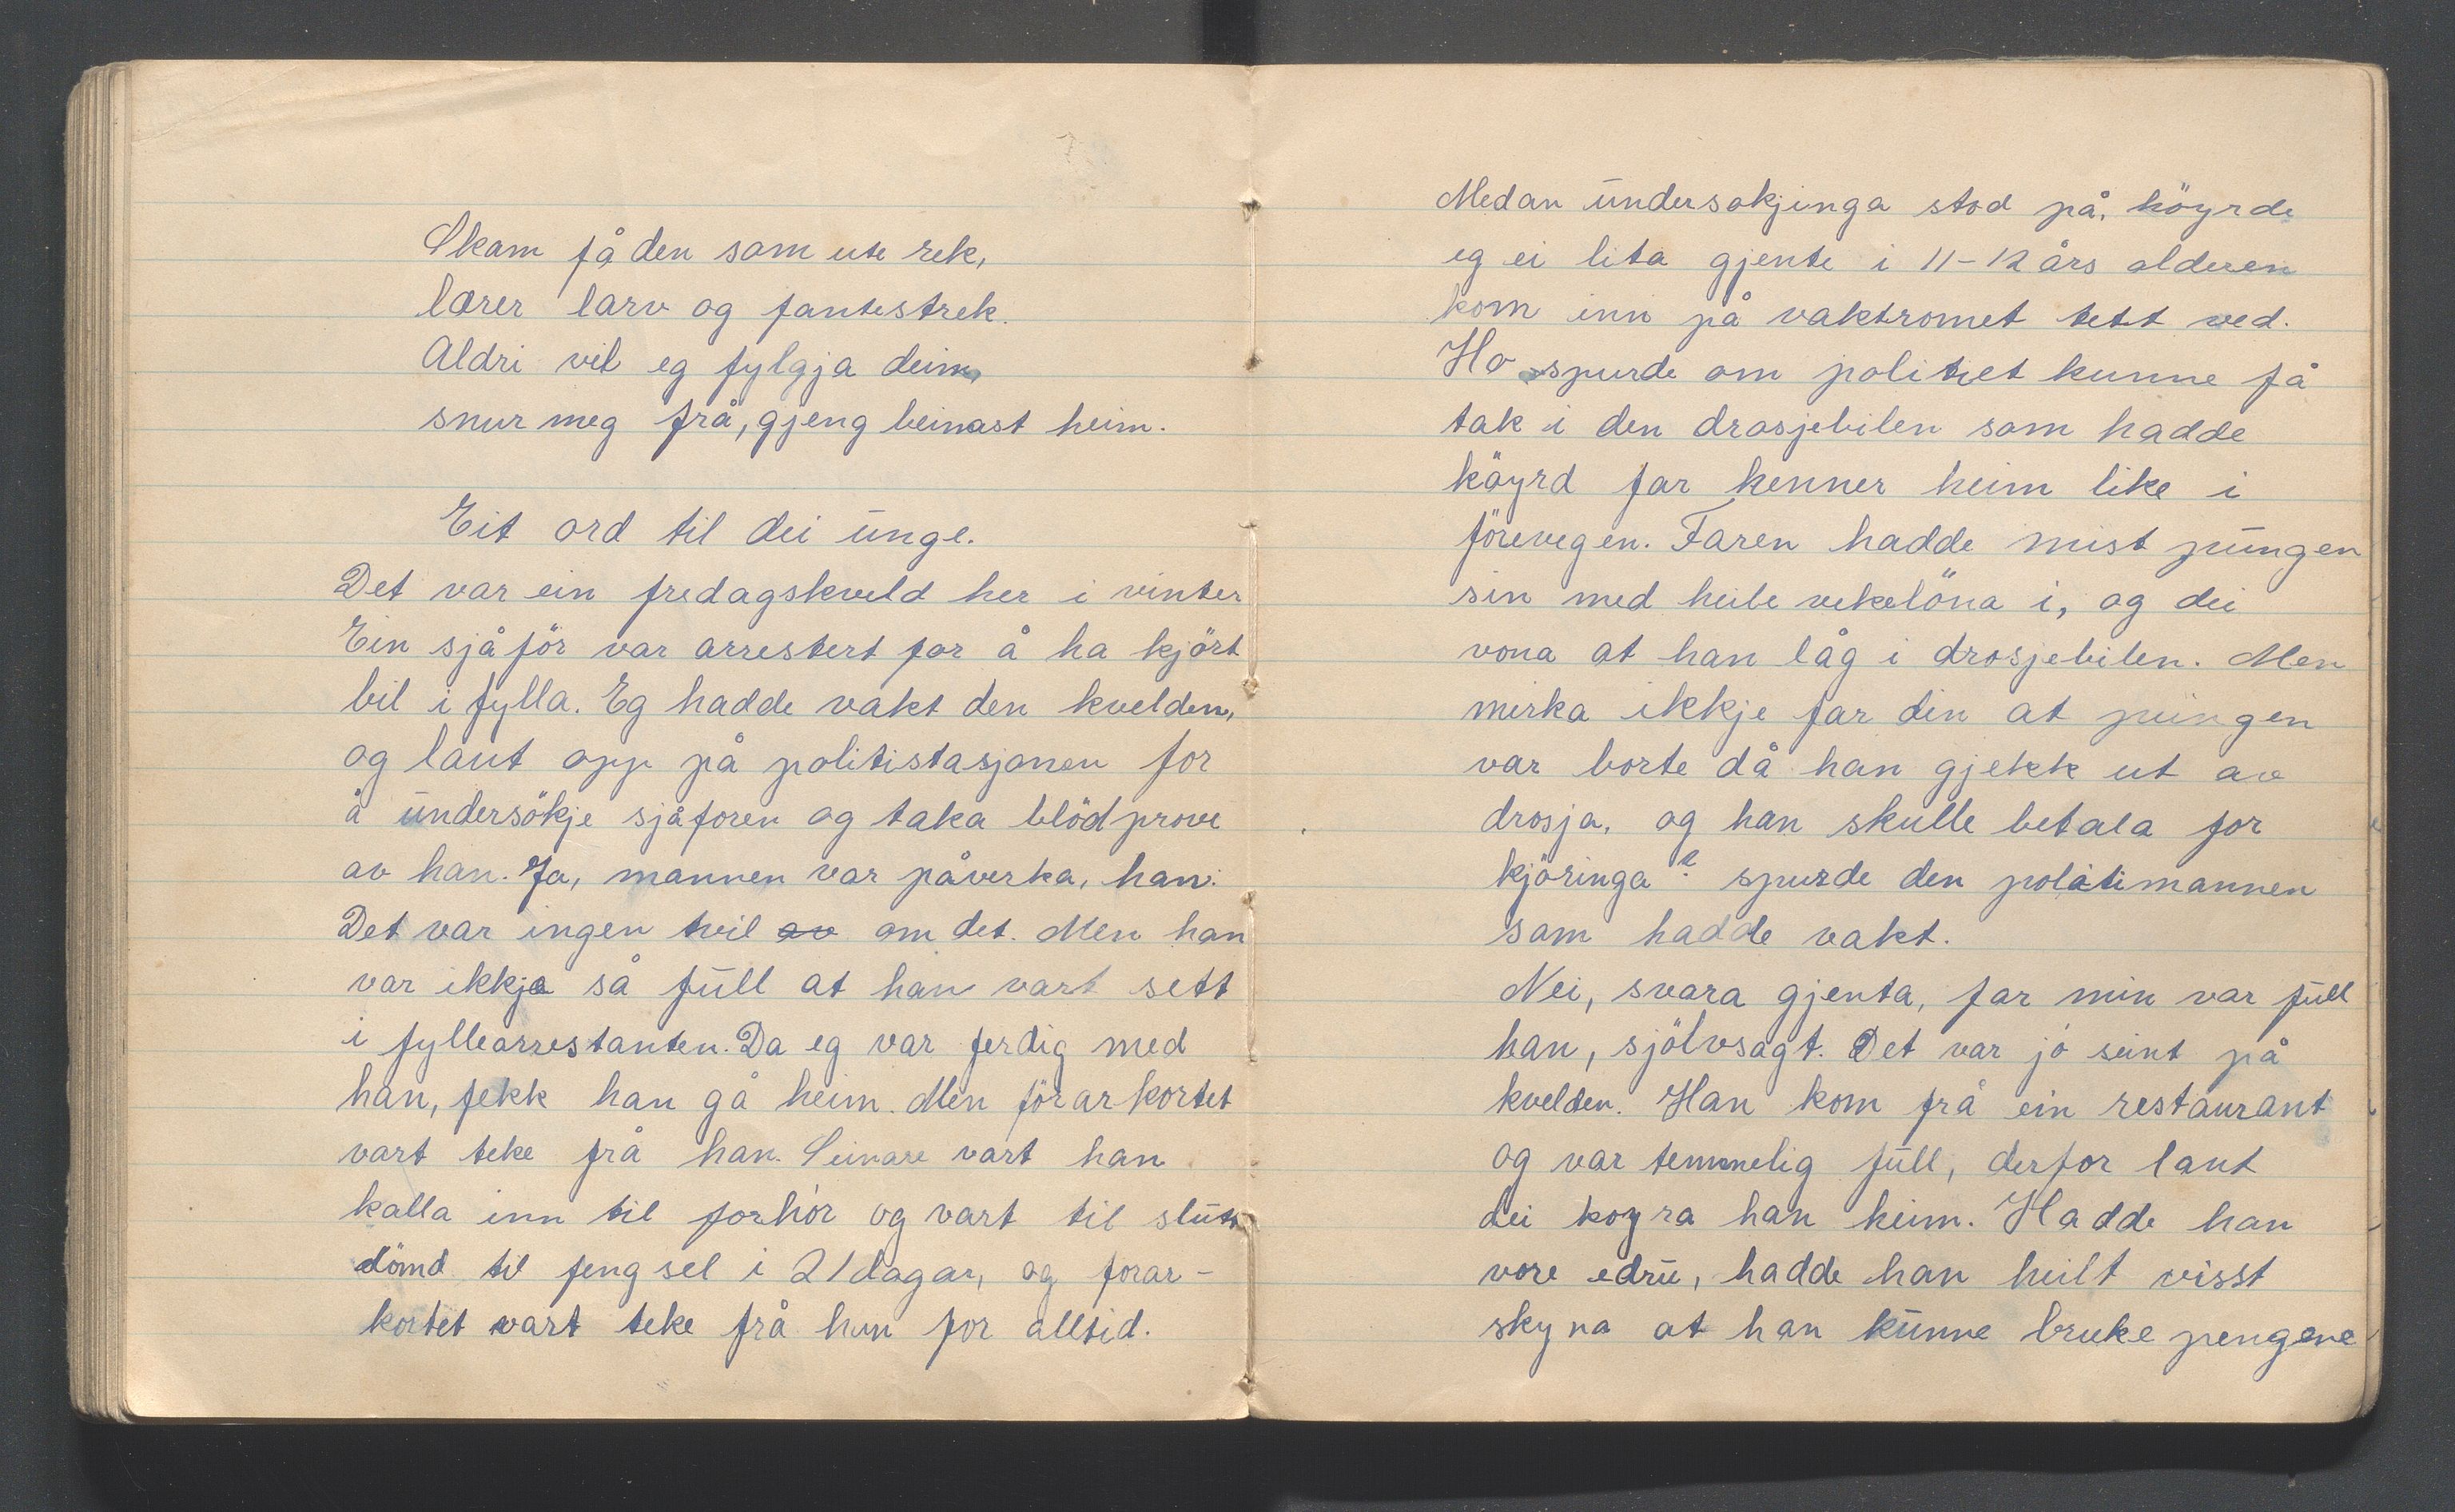 Skam få den som ute rek,
lærer larv og fantestrek.
Aldri vil eg fylgja deim,
snur meg frå, gjeng beinast heim.
Eit ord til dei unge.
Det var ein fredagskveld her i vinter
Ein sjåför var arrestert for å ha kjört
bil i fylla. Eg hadde vakt den kvelden,
og laut opp på politistasjonen for
å undersökje sjåforen og taka blödprove
av han. Ja, mannen var påverka, han.
Det var ingen tvil av om det. Men han
var ikkje så full at han vart sett
i fyllearrestanten. Da eg var ferdig med
han, fekk han gå heim. Men förarkortet
vart teke frå han. Seinare vart han
kalla inn til forhör og vart til slutt
dömd til fengsel i 21 dagar, og forar-
kortet vart teke frå han for alltid.
Medan undersokjinga stod på, höyrde
eg ei lita gjente i 11-12 års alderen
kom inn på vaktromet tett ved.
Ho spurde om politiet kunne få
tak i den drosjebilen som hadde
köyrd far henner heim like i
förevegen. Faren hadde mist pungen
sin med heile vekelöna i, og dei
vona at han låg i drosjebilen. Men
merka ikkje far din at pungen
var borte då han gjekk ut av
drosja, og han skulle betala for
kjöringa? spurde den politimannen
som hadde vakt.
Nei, svara gjenta, far min var full
han, sjölvsagt. Det var jo seint på
kvelden. Han kom frå ein restaurant
og var temmelig full, derfor laut
dei koyra han heim. Hadde han
vore edru, hadde han heilt visst
skyna at han kunne bruke pengene